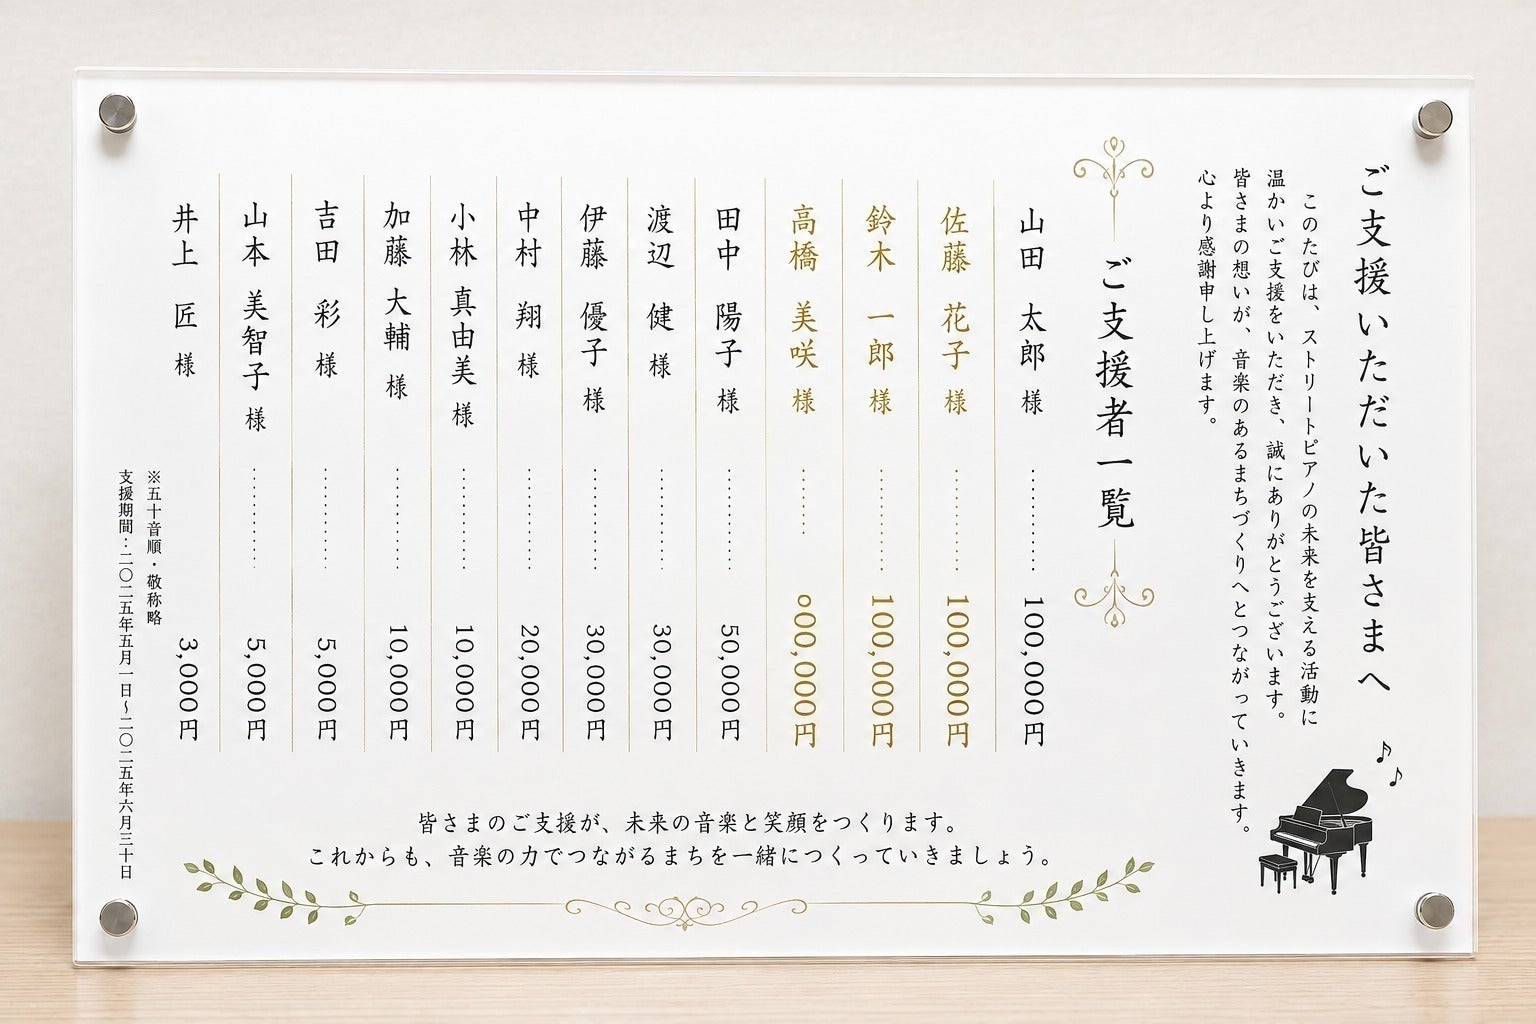 ご支援いただいた皆さまへ
このたびは、ストリートピアノの未来を支える活動に
温かいご支援をいただき、誠にありがとうございます。
皆さまの想いが、音楽のあるまちづくりへとつながっていきます。
心より感謝申し上げます。
ご支援者一覧
山田 太郎 様 ………… 100,000円
佐藤 花子 様 ………… 100,000円
鈴木 一郎 様 ………… 100,000円
高橋 美咲 様 ……… o00,000円
田中 陽子 様 ………… 50,000円
渡辺 健 様 ………… 30,000円
伊藤 優子 様 ………… 30,000円
中村 翔 様 ………… 20,000円
小林 真由美 様 ………… 10,000円
加藤 大輔 様 ………… 10,000円
吉田 彩 様 ………… 5,000円
山本 美智子 様 ………… 5,000円
井上 匠 様 3,000円
※五十音順・敬称略
支援期間:二〇二五年五月一日〜二〇二五年六月三十日
皆さまのご支援が、未来の音楽と笑顔をつくります。
これからも、音楽の力でつながるまちを一緒につくっていきましょう。